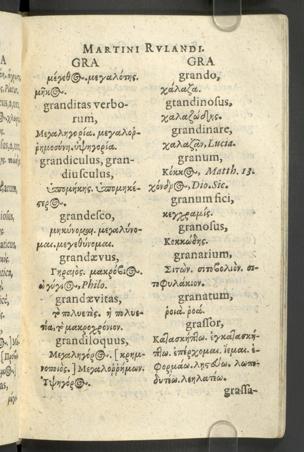 MARTINI RVLANDI.
GRA
μέγεθος. μεγαλότης.
μῆκος.
granditas verbo-
rum,
Μεγαληγορία. μεγαλορ-
ρημοσύνη. ὑψηγορία.
grandiculus, gran-
diusculus,
ὑπομήκης. ὑπομηκέ-
στερος.
grandesco,
μηκύνομαι. μεγαλύνο-
μαι. μεγεθύνομαι.
grandævus,
Γηραιός. μακρόβιος.
ὠγύγιος, Philo.
grandævitas,
τὸ πολυετὲς. ἡ πολυε-
τία. τὸ μακροχρόνιον.
grandiloquus,
Μεγαλήγορος. [κρημνο-
ποιός.] Μεγαλορρήμων.
Ὑψήγορος.
GRA
grando,
χάλαζα.
gtandinosus,
χαλαζώδης.
grandinare,
χαλαζᾶν, Lucia.
granum,
Κόκκος, Matth. 13.
χόνδρος, Dio. Sic.
granum fici,
κεγχραμίς.
granosus,
Κοκκώδης.
granarium,
Σιτών. σιτοβολιὸν. σι-
τοφυλάκιον.
granatum,
ῥοιὰ. ῥοά.
grassor,
Κατασκήπτω. ἐγκατασκή-
πτω. ἐπέρχομαι. ἵεμαι. ἐ-
φορμάω. λῃστεύω. λωπο-
δυτέω. λεηλατέω.
grassa-